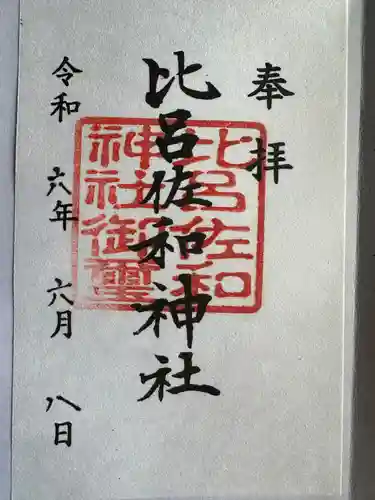 奉拝
比呂佐和神社
比呂佐和
神社御璽
令和六年六月八日